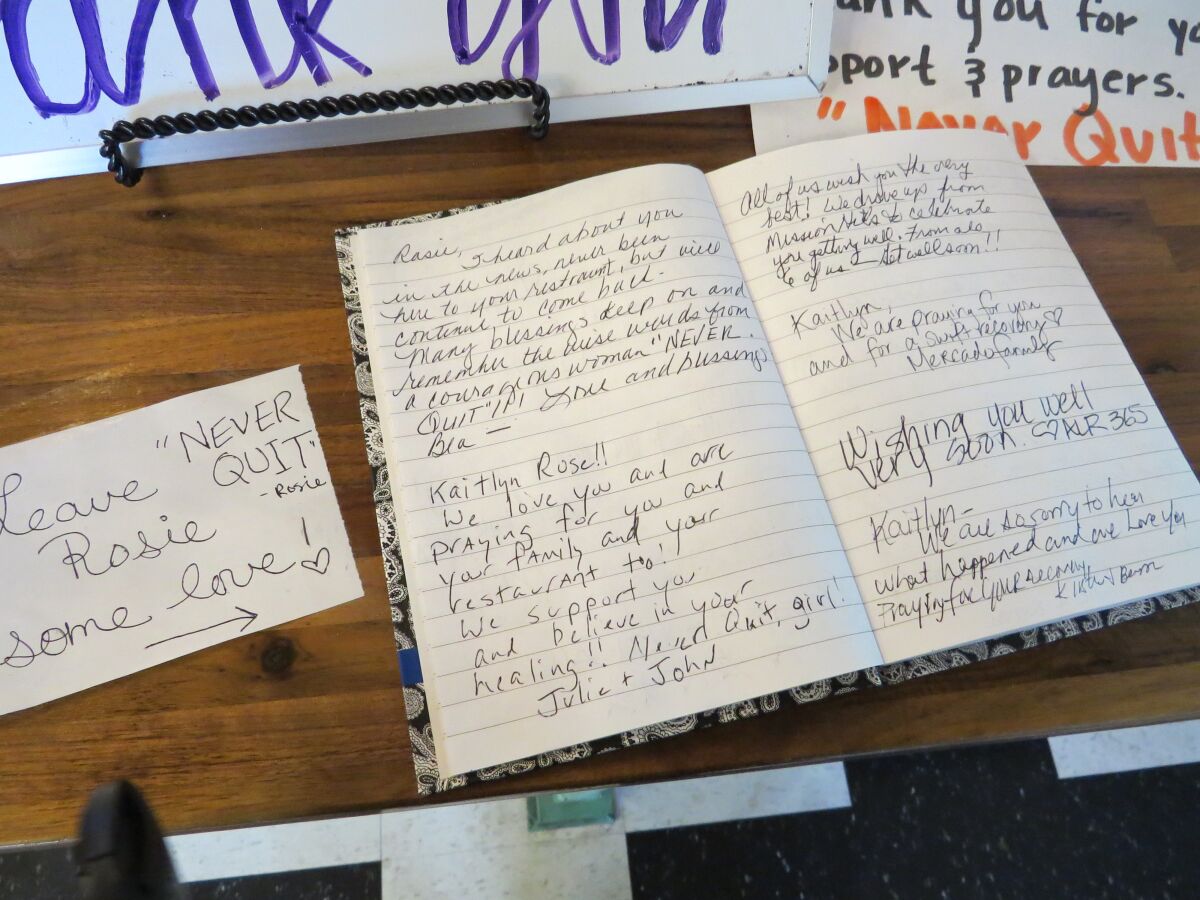 ank you
ank you for yo
pport & prayers.
"Never Quit
"NEVER
QUIT"
-Rosie
Leave
Rosie
some love!
Rosie,
I heard about you
in the news, never been
here to your restraunt, but will
continue to come back.
Many blessings keep on and
remember the wise words from
a courageous woman "NEVER
QUIT"!!! Love and blessings
Bea
Kaitlyn Rose!!
We love you and are
praying for you and
your family and your
restaurant to!
We support you
and believe in your
healing!! Never Quit, girl!
Julie + John
All of us wish you the very
best! We drove up from
Mission Hills to celebrate
you getting well. From all
of us - Get well soon!!
Kaitlyn,
We are praying for you
and for a swift recovery ♡
Mercado family
Wishing you well
very soon. ♡ KLR 365
Kaitlyn-
We are so sorry to hear
what happened and we Love you
Praying for your recovery,